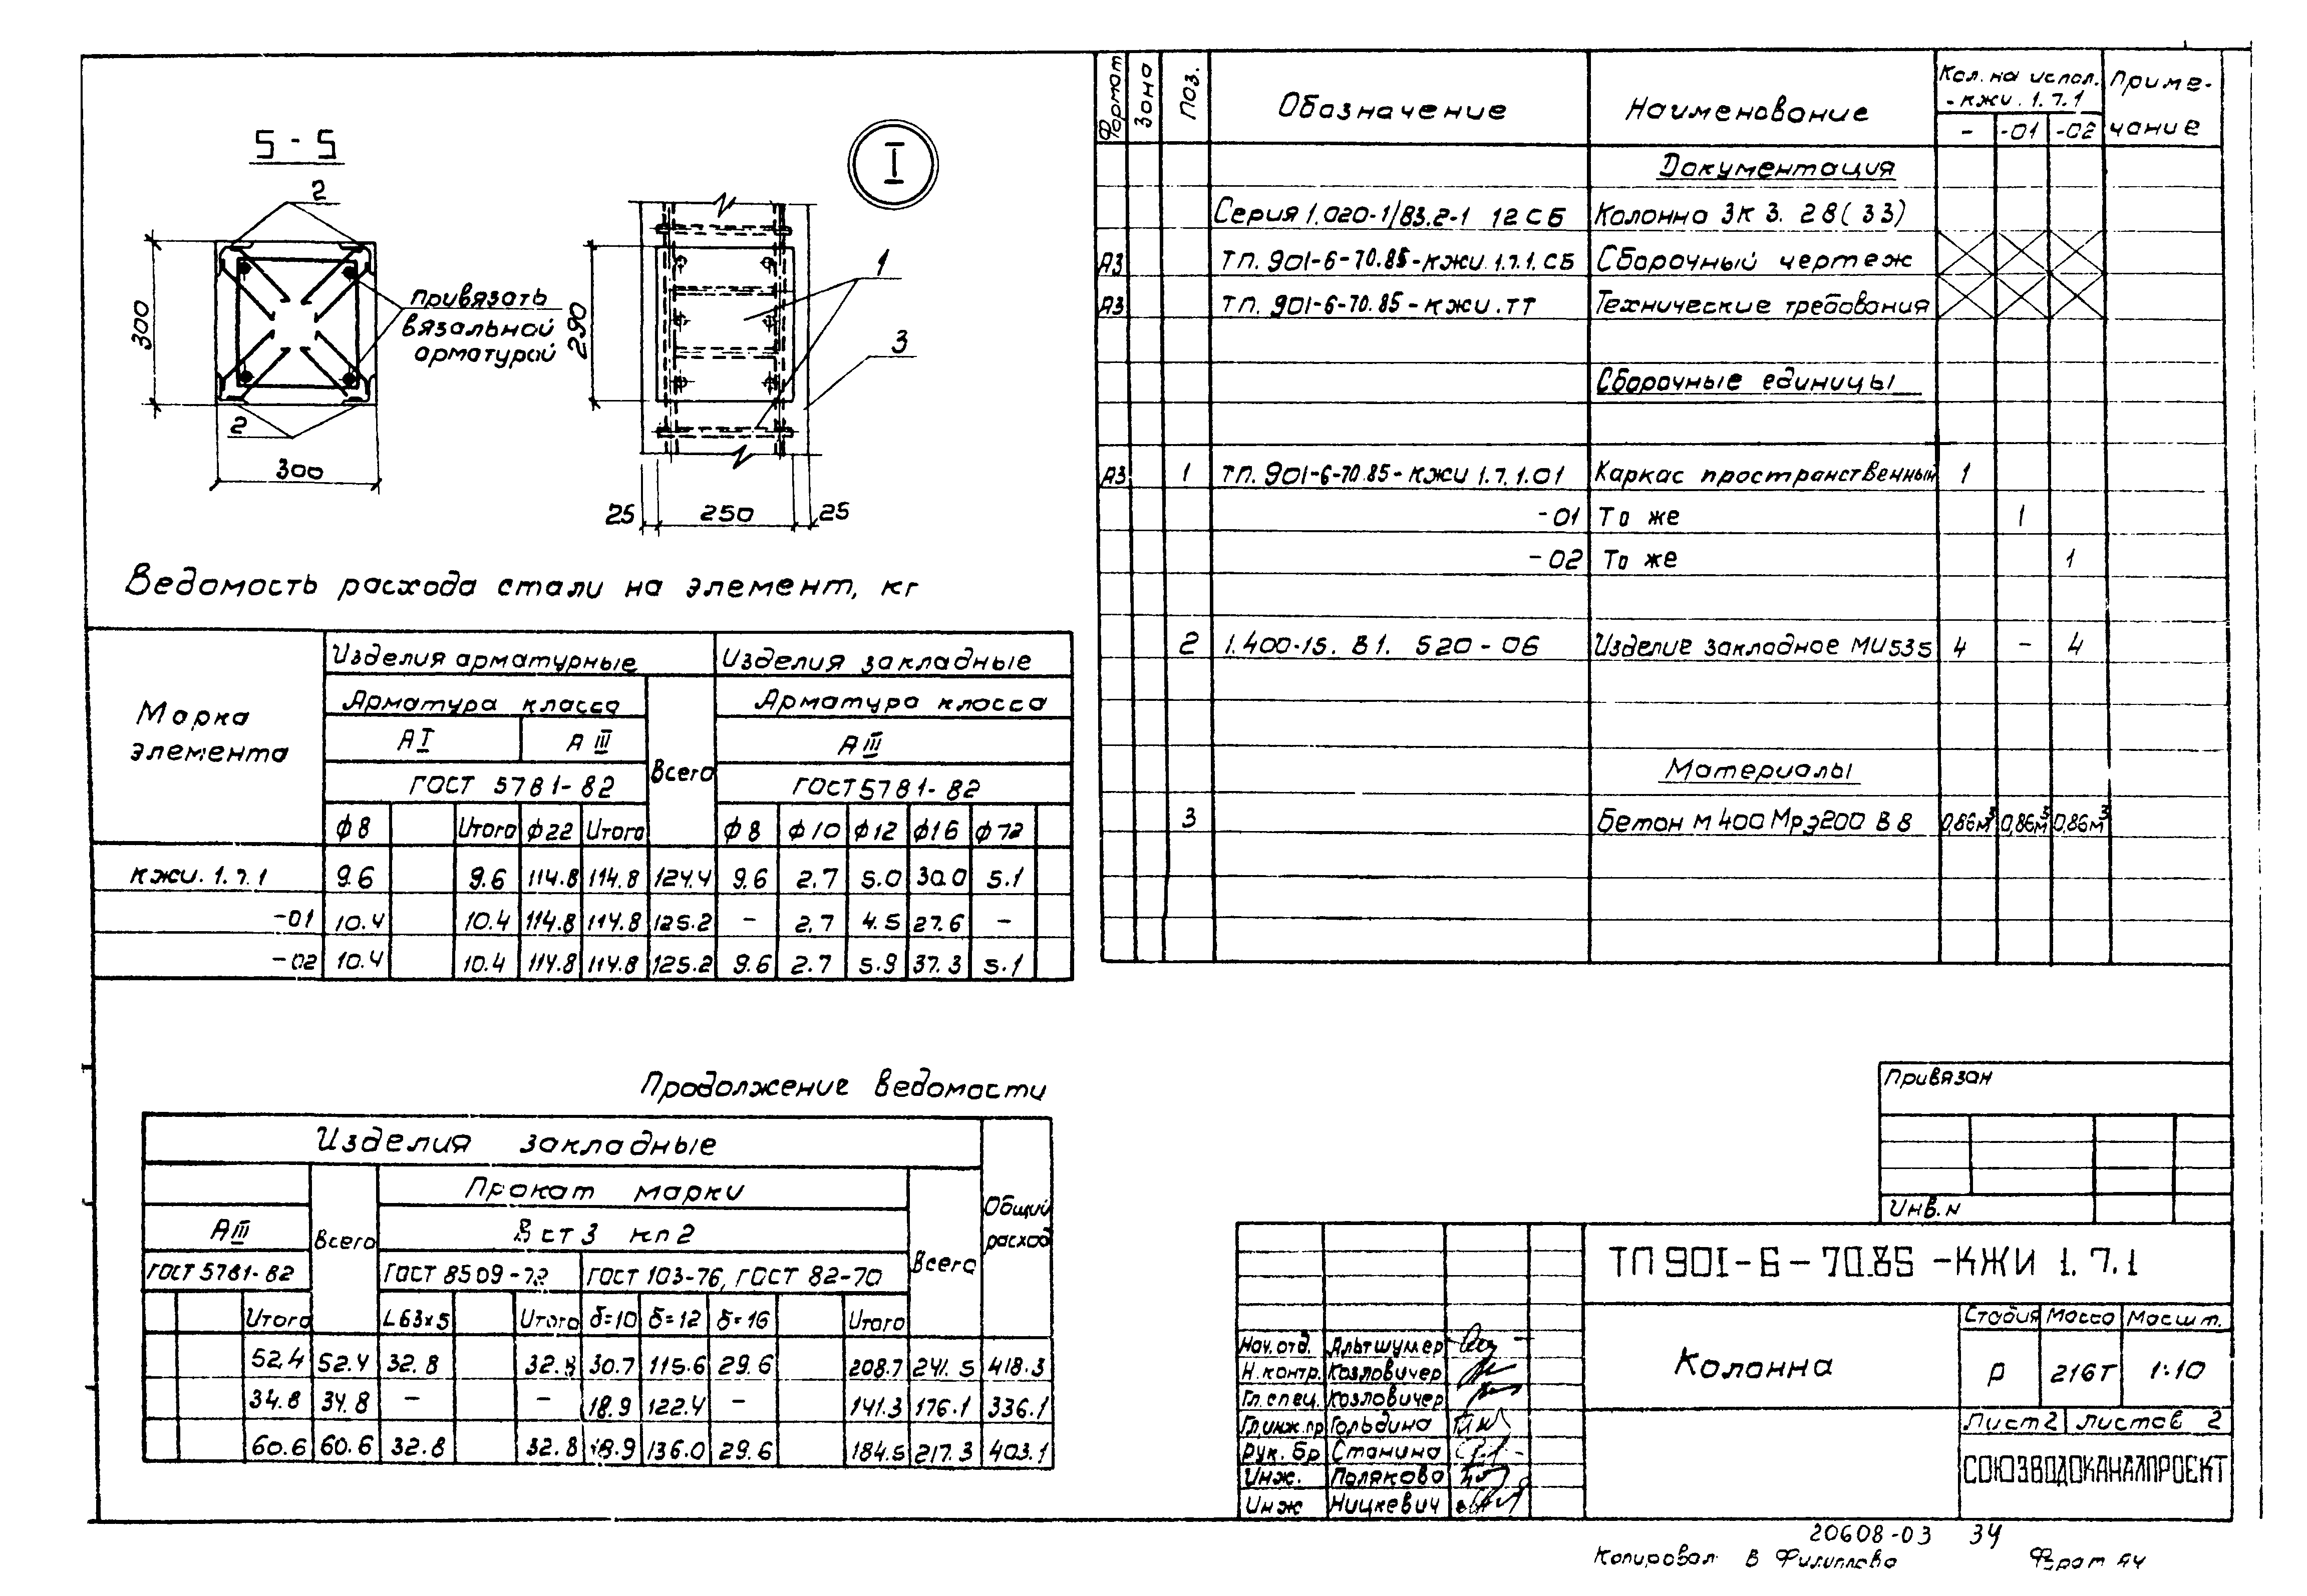 5 - 5
2
I
300
привязать
вязальной
арматурой
290
1
3
2
300
25 250 25
Ведомость расхода стали на элемент, кг
Марка элемента
Изделия арматурные Изделия закладные
Арматура класса Всего Арматура класса
А I А III А III
ГОСТ 5781-82 ГОСТ 5781-82
ϕ8 Итого ϕ22 Итого ϕ8 ϕ10 ϕ12 ϕ16 ϕ72
кжи. 1.7.1 9.6 9.6 114.8 114.8 124.4 9.6 2.7 5.0 30.0 5.1
-01 10.4 10.4 114.8 114.8 125.2 - 2.7 4.5 27.6 -
-02 10.4 10.4 114.8 114.8 125.2 9.6 2.7 5.9 37.3 5.1
Продолжение ведомости
Изделия закладные Общий расход
Прокат марки
АIII Всего Вст3 кп2 Всего
ГОСТ 5781-82 ГОСТ 8509-72 ГОСТ 103-76, ГОСТ 82-70
Итого L63×5 Итого δ=10 δ=12 δ=16 Итого
52.4 52.4 32.8 32.8 30.7 115.6 29.6 208.7 241.5 418.3
34.8 34.8 - - 18.9 122.4 - 141.3 176.1 336.1
60.6 60.6 32.8 32.8 18.9 136.0 29.6 184.5 217.3 403.1
Формат Зона Поз. Обозначение Наименование Кол. на испол. -кжи. 1.7.1 Примечание
- -01 -02
Документация
Серия 1.020-1/83.2-1 12 СБ Колонна 3К 3. 28(33)
А3 ТП. 901-6-70.85-кжи.1.7.1.СБ Сборочный чертеж
А3 ТП. 901-6-70.85-кжи.ТТ Технические требования
Сборочные единицы
А3 1 ТП. 901-6-70.85-кжи 1.7.1.01 Каркас пространственный 1
-01 То же 1
-02 То же 1
2 1.400-15. В1. 520-06 Изделие закладное МИ535 4 - 4
Материалы
3 Бетон М400 Мрз200 В8 0,86м³ 0,86м³ 0,86м³
Привязан
Инв.N
ТП 901-6-70.85-КЖИ 1.7.1
Колонна
Стадия Масса Масшт.
Р 216Т 1:10
Лист 2 Листов 2
СОЮЗВОДОКАНАЛПРОЕКТ
Нач.отд. Альтшулер
Н.контр. Козловичер
Гл.спец. Козловичер
Гл.инж.пр Гольдина
Рук. бр Станина
Инж. Полякова
Инж Ницкевич
20608-03 34
Копировал В Филиппова Форат А4